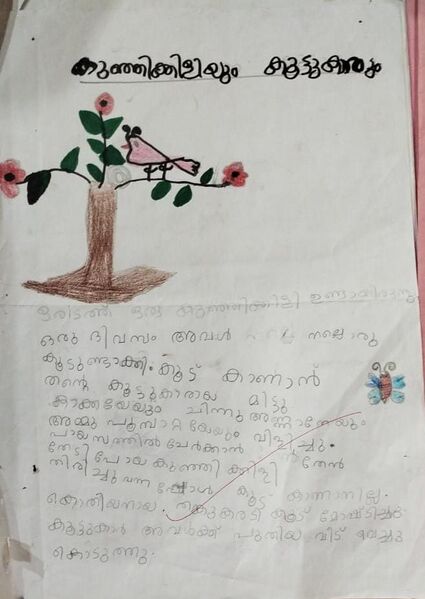 കുഞ്ഞിക്കിളിയും കൂട്ടുകാരും
ഒരിടത്ത് ഒരു കുഞ്ഞിക്കിളി ഉണ്ടായിരുന്നു.
ഒരു ദിവസം അവൾ നല്ലൊരു
കൂടുണ്ടാക്കി. കൂട് കാണാൻ
തന്റെ കൂട്ടുകാരായ മിട്ടു
കാക്കയേയും ചിന്നു അണ്ണാനേയും
അമ്മു പൂമ്പാറ്റയേയും വിളിച്ചു.
പായസത്തിൽ ചേർക്കാൻ തേൻ
തേടി പോയ കുഞ്ഞി ക്കിളി
തിരിച്ചു വന്ന പ്പോൾ കൂട് കാണാനില്ല.
കൊതിയനായ കൂട് മോഷ്ടിച്ചു.
കൂട്ടുകാർ അവൾക്ക് പുതിയ വീട് വെച്ചു
കൊടുത്തു.